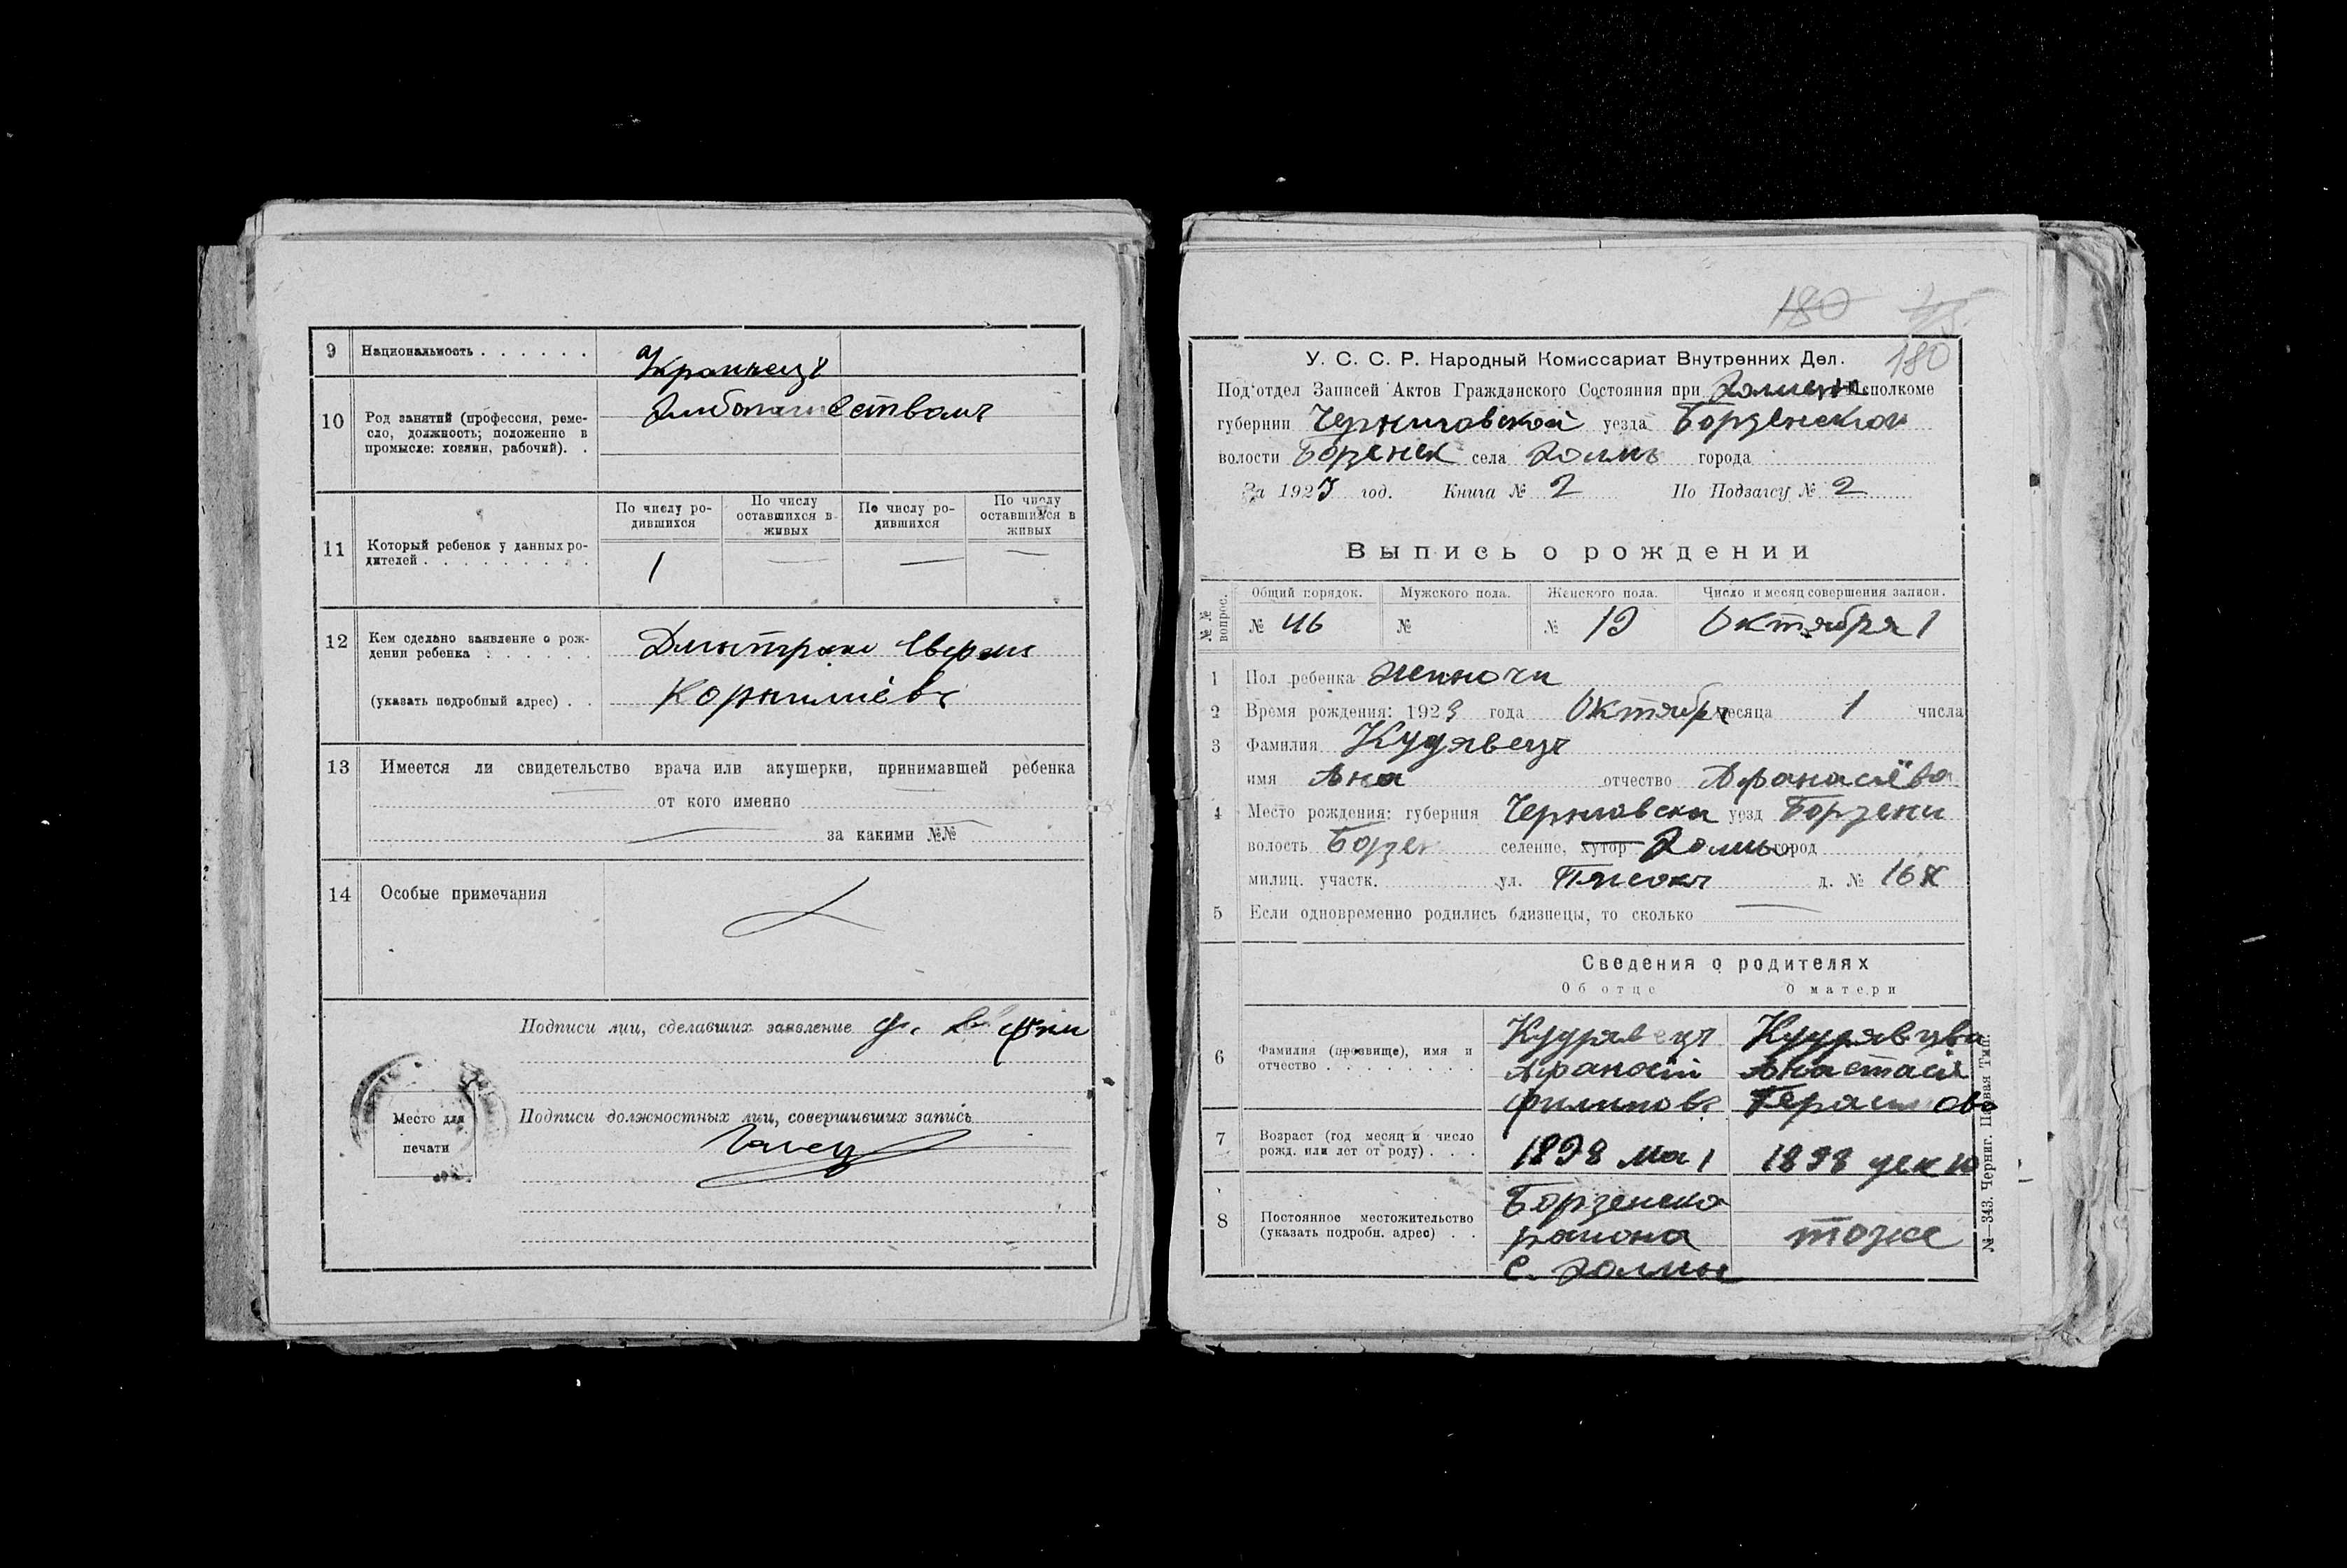 9 Национальность . . . . . . Украинецъ
10 Род занятий (профессия, реме-
сло, должность; положение в
промысле: хозяин, рабочий). .
11 Который ребенок у данных ро-
дителей . . . . . . . . .
По числу ро-
дившихся
По числу
оставшихся в
живых
По числу ро-
дившихся
По числу
оставшихся в
живых
1 — — —
12 Кем сделано заявление о рож-
дении ребенка . . . . . .
(указать подробный адрес) . .
13 Имеется ли свидетельство врача или акушерки, принимавшей ребенка
от кого именно
за какими №№
14 Особые примечания
Подписи лиц, сделавших заявление
Подписи должностных лиц, совершивших запись
Место для
печати
180
180
У. С. С. Р. Народный Комиссариат Внутренних Дел.
Под'отдел Записей Актов Гражданского Состояния при Исполкоме
губернии Черниговской уезда Борзенского
волости Борзенск села Холмы города
За 1923 год. Книга № 2 По Подзагсу № 2
Выпись о рождении
№№ вопрос.
Общий порядок. Мужского пола. Женского пола. Число и месяц совершения записи.
№ 46 № № 19 Октября 1
1 Пол ребенка
2 Время рождения: 1923 года Октябр месяца 1 числа
3 Фамилия Кудявецъ
имя Ана отчество Афанасиёва
4 Место рождения: губерния Черниовски уезд Борзени
волость Борзен селение, хутор Холмы город
милиц. участк. ул. д. № 168
5 Если одновременно родились близнецы, то сколько —
Сведения о родителях
Об отце О матери
6 Фамилия (прозвище), имя и
отчество . . . . . . . .
Кудрявецъ
Афанасій
Филиповъ
Кудрявцва
Анастасія
Герасимова
7 Возраст (год месяц и число
рожд. или лет от роду) . . .
1898 ма 1
1898 дек 10
8 Постоянное местожительство
(указать подробн. адрес) . .
Борзенско
раиона
с. Холмы
тоже
№—343. Черниг. Паевая Тип.